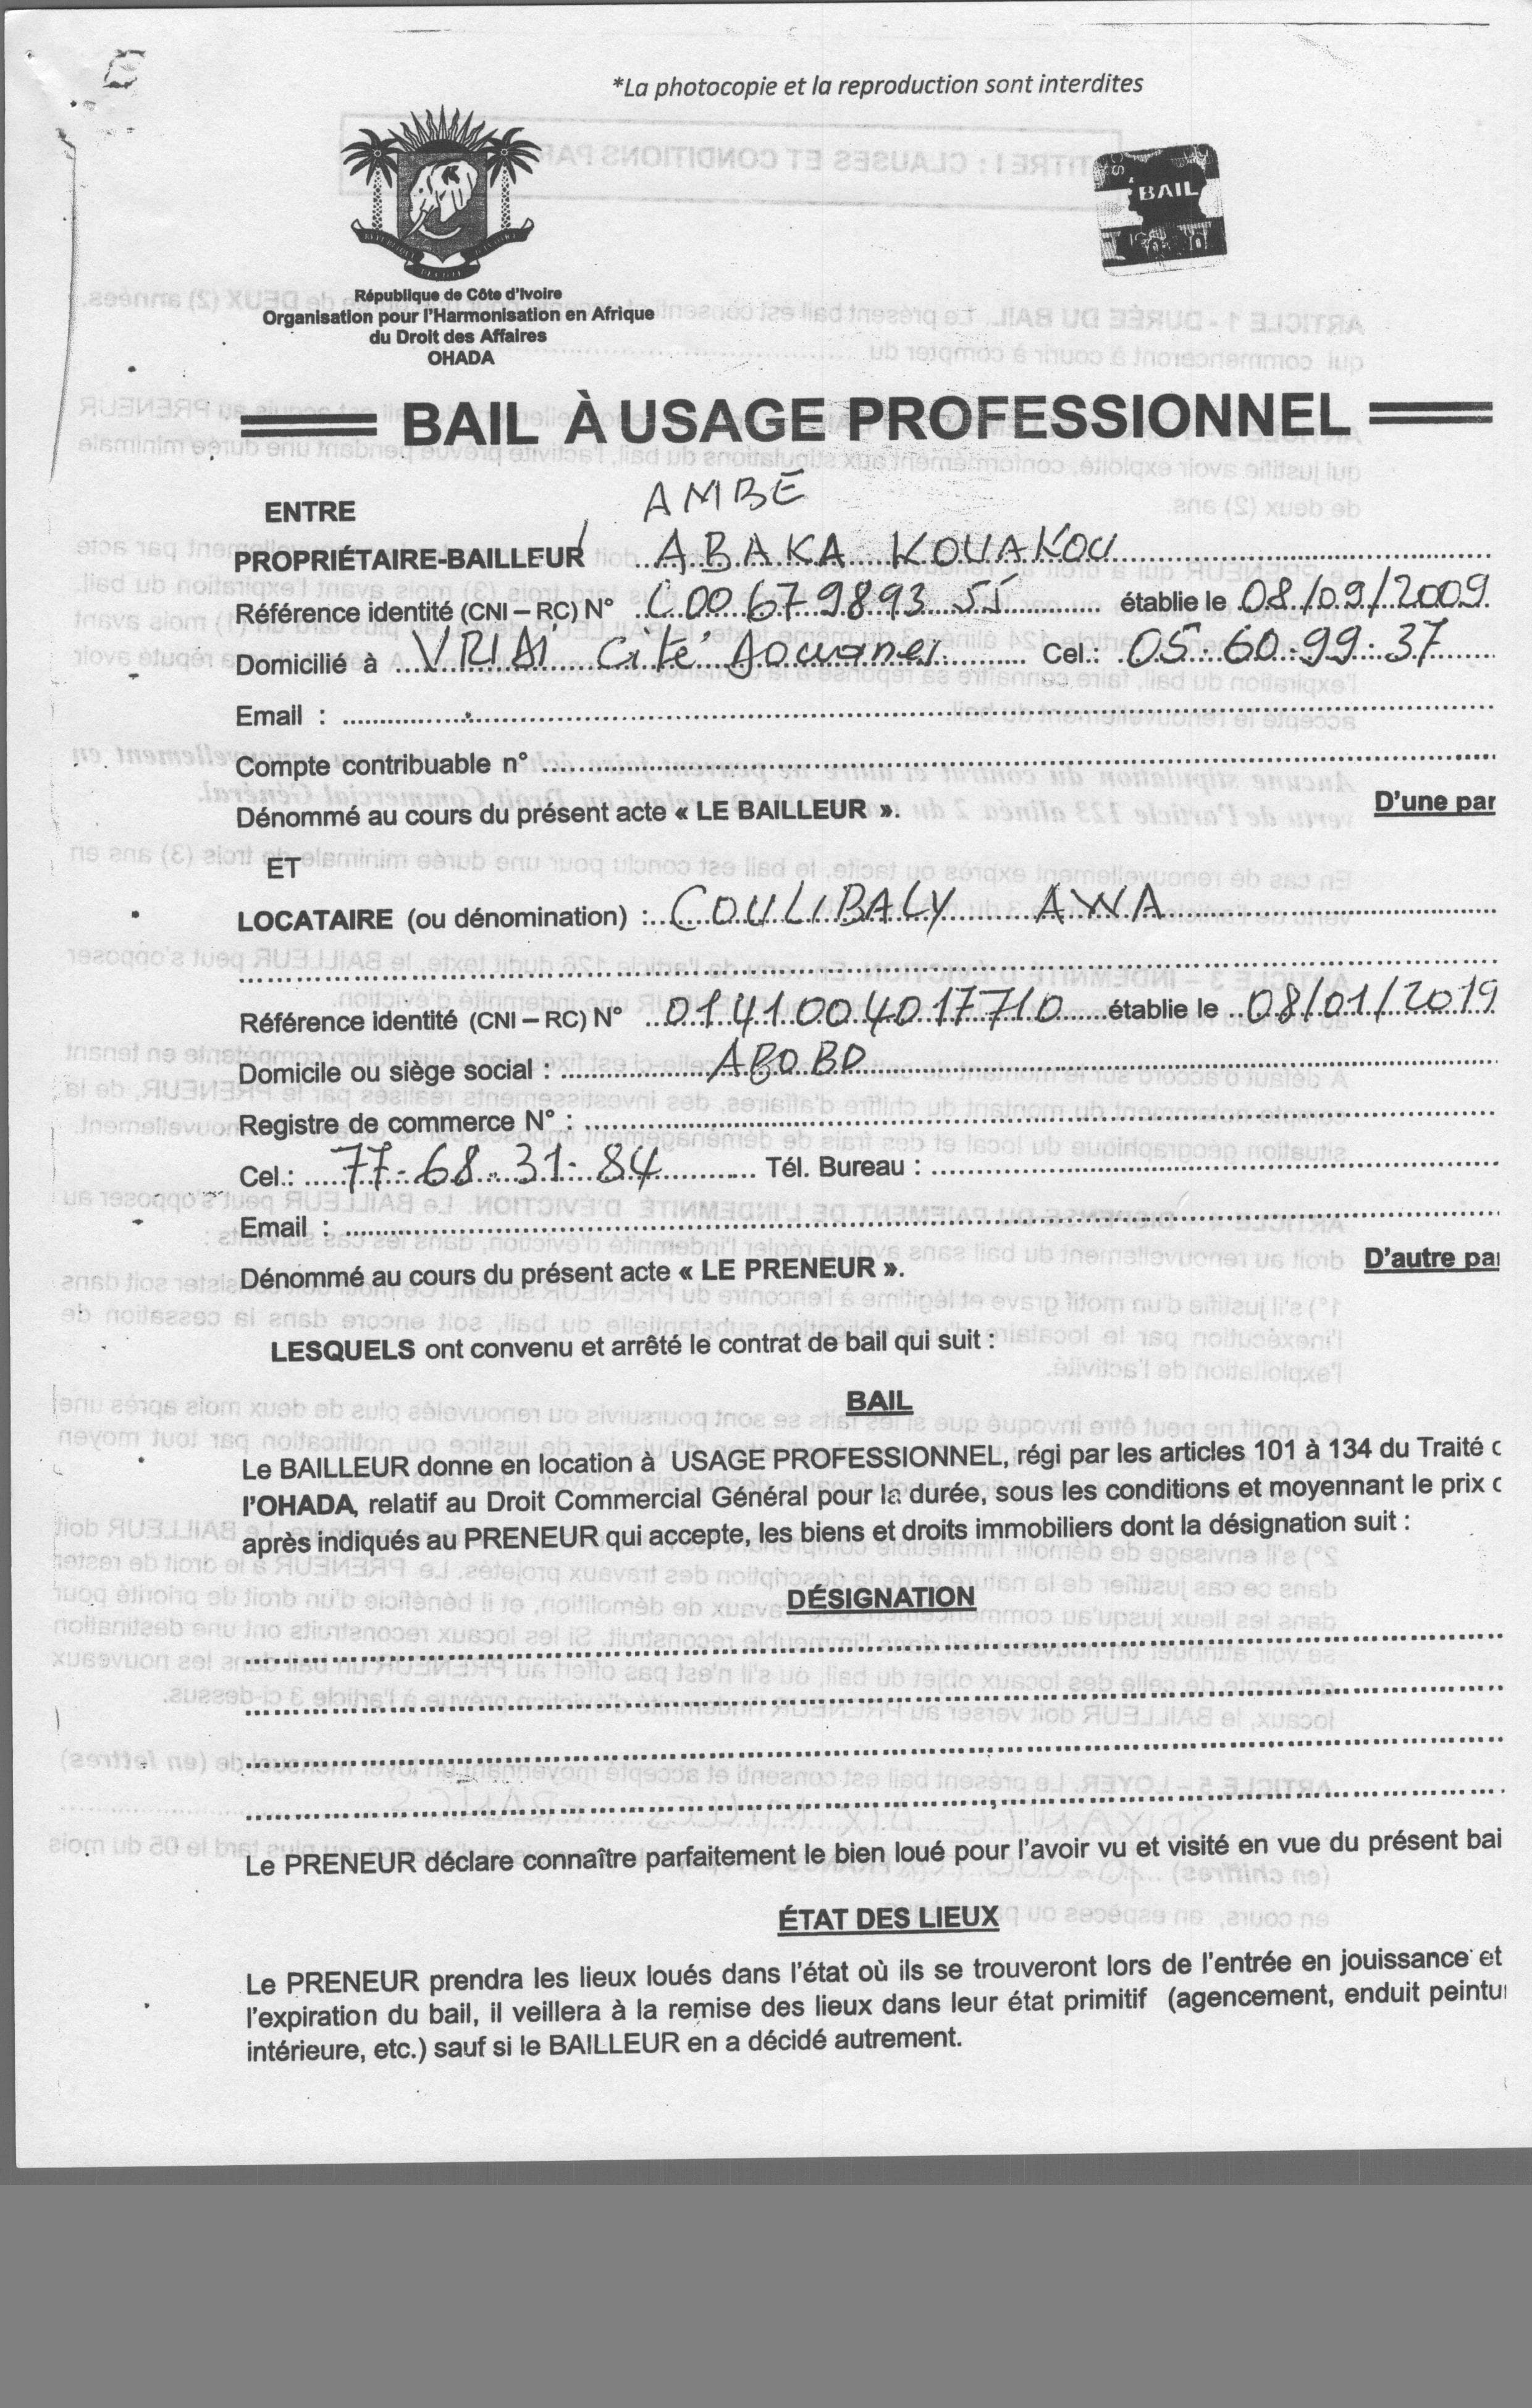 *La photocopie et la reproduction sont interdites
BAIL
République de Côte d'Ivoire
Organisation pour l'Harmonisation en Afrique
du Droit des Affaires
OHADA
BAIL À USAGE PROFESSIONNEL
ENTRE
AMBE
PROPRIÉTAIRE-BAILLEUR ABAKA KOUAKOU
Référence identité (CNI – RC) N° C 00 67 9893 établie le 08/09/2009
Domicilié à Cité Cel.: 05-60-99-37
Email :
Compte contribuable n°
Dénommé au cours du présent acte « LE BAILLEUR ». D'une par
ET
LOCATAIRE (ou dénomination) : COULIBALY AWA
Référence identité (CNI – RC) N° 0141004017710 établie le 08/01/2019
Domicile ou siège social : ABOBO
Registre de commerce N° :
Cel.: 77-68-31-84 Tél. Bureau :
Email :
Dénommé au cours du présent acte « LE PRENEUR ». D'autre par
LESQUELS ont convenu et arrêté le contrat de bail qui suit :
BAIL
Le BAILLEUR donne en location à USAGE PROFESSIONNEL, régi par les articles 101 à 134 du Traité
l'OHADA, relatif au Droit Commercial Général pour la durée, sous les conditions et moyennant le prix
après indiqués au PRENEUR qui accepte, les biens et droits immobiliers dont la désignation suit :
DÉSIGNATION
Le PRENEUR déclare connaître parfaitement le bien loué pour l'avoir vu et visité en vue du présent bai
ÉTAT DES LIEUX
Le PRENEUR prendra les lieux loués dans l'état où ils se trouveront lors de l'entrée en jouissance et
l'expiration du bail, il veillera à la remise des lieux dans leur état primitif (agencement, enduit peintu
intérieure, etc.) sauf si le BAILLEUR en a décidé autrement.